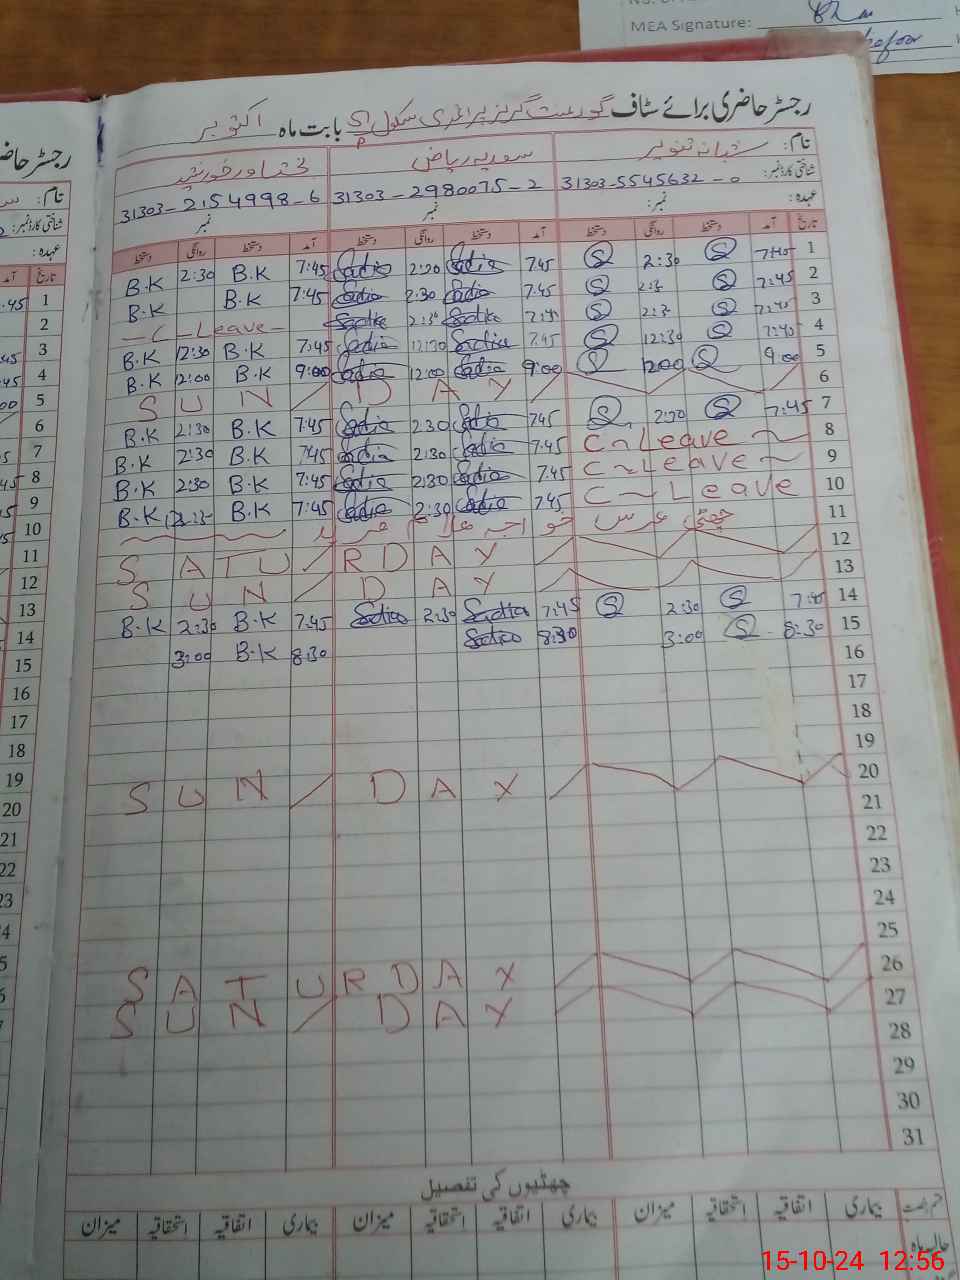 MEA Signature:
رجسٹر حاضری برائے سٹاف گورنمنٹ گرلز پرائمری سکول بابت ماہ اکتوبر
نام: شبانہ تنویر سعدیہ ریاض
شناختی کارڈ نمبر: 31303-5545632-0 31303-2980075-2 31303-2154998-6
عہدہ: نمبر: نمبر نمبر
تاریخ آمد دستخط روانگی دستخط آمد دستخط روانگی دستخط آمد دستخط روانگی دستخط
1 7:45 S 2:30 S 7:45 Sadia Sadia 7:45 B.K 2:30 B.K
2 7:45 S S 7:45 Sadia 2:30 Sadia 7:45 B.K B.K
3 7:45 S S Sadia Sadia C-Leave-
4 7:45 S 12:30 S 7:45 Sadia 12:30 Sadia 7:45 B.K 12:30 B.K
5 9:00 S 12:00 S 9:00 Sadia 12:00 Sadia 9:00 B.K 12:00 B.K
6 SUN/DAY
7 7:45 S S 7:45 Sadia 2:30 Sadia 7:45 B.K 2:30 B.K
8 C~Leave~ 7:45 Sadia 2:30 Sadia 7:45 B.K 2:30 B.K
9 C~Leave~ 7:45 Sadia 2:30 Sadia 7:45 B.K 2:30 B.K
10 C~Leave 7:45 Sadia 2:30 Sadia 7:45 B.K B.K
11 چھٹی عرس خواجہ غلام فرید
12 SATURDAY
13 SUN/DAY
14 7:45 S 2:30 S 7:45 Sadia 2:30 Sadia 7:45 B.K 2:30 B.K
15 8:30 S 3:00 8:30 Sadia 8:30 B.K 3:00
16
17
18
19
20 SUN/DAY
21
22
23
24
25
26 SATURDAY
27 SUN/DAY
28
29
30
31
چھٹیوں کی تفصیل
بیماری اتفاقیہ استحقاقیہ میزان بیماری اتفاقیہ استحقاقیہ میزان بیماری اتفاقیہ استحقاقیہ میزان
حالیہ ماہ
15-10-24 12:56